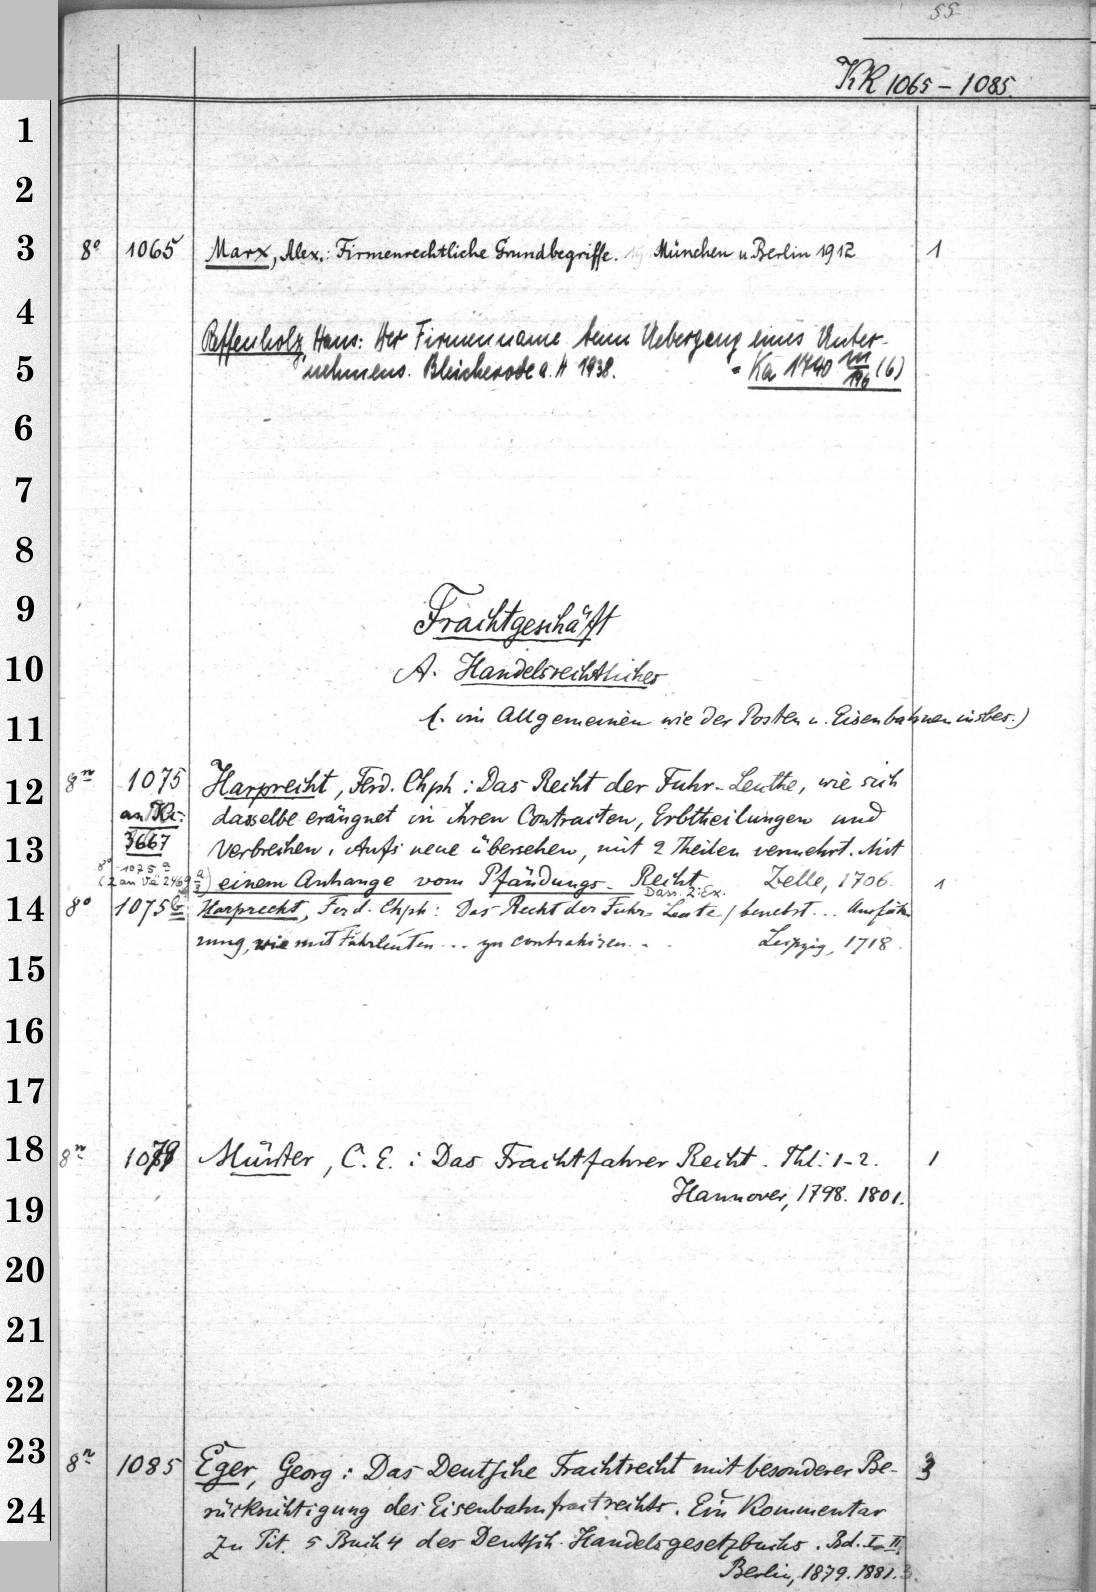 55
KR 1065 – 1085.
1
2
3 8° 1065 Marx, Alex.: Firmenrechtliche Grundbegriffe. München u. Berlin 1912 1
4
Reffenholz, Hans: Der Firmenname beim Uebergang eines Unter-
5 nehmens. Bleicherode a. H 1938. = Ka 1740 m/196 (6)
6
7
8
9 Frachtgeschäft
10 A. Handelsrechtliches
11 (. im Allgemeinen wie der Posten u. Eisenbahnen insbes.)
12 8° 1075 Harprecht, Ferd. Chph: Das Recht der Fuhr-Leuthe, wie sich
an Kr: dasselbe eräugnet in ihren Contracten, Erbtheilungen und
13 3667 Verbrechen. Aufs neue übersehen, mit 2 Theilen vermehrt. Mit
8° 1075 a (2 an Va 2469 a/3) einem Anhange vom Pfändungs-Recht Zelle, 1706. 1
Dass. 2. Ex.
14 8° 1075 b Harprecht, Ferd. Chph: Das Recht der Fuhr-Leute / benebst ... Ausfüh-
rung, wie mit Fuhrleuten ... zu contrahiren. .. Leipzig, 1718.
15
16
17
18 8° 1079 Münter, C. E.: Das Frachtfahrer Recht. Thl: 1-2. 1
Hannover, 1798. 1801.
19
20
21
22
23 8° 1085 Eger, Georg: Das Deutsche Frachtrecht mit besonderer Be- 3
24 rücksichtigung des Eisenbahnfrachtrechts. Ein Kommentar
zu Tit. 5 Buch 4 der Deutsch. Handelsgesetzbuchs. Bd. I–III
Berlin, 1879. 1881. 3.